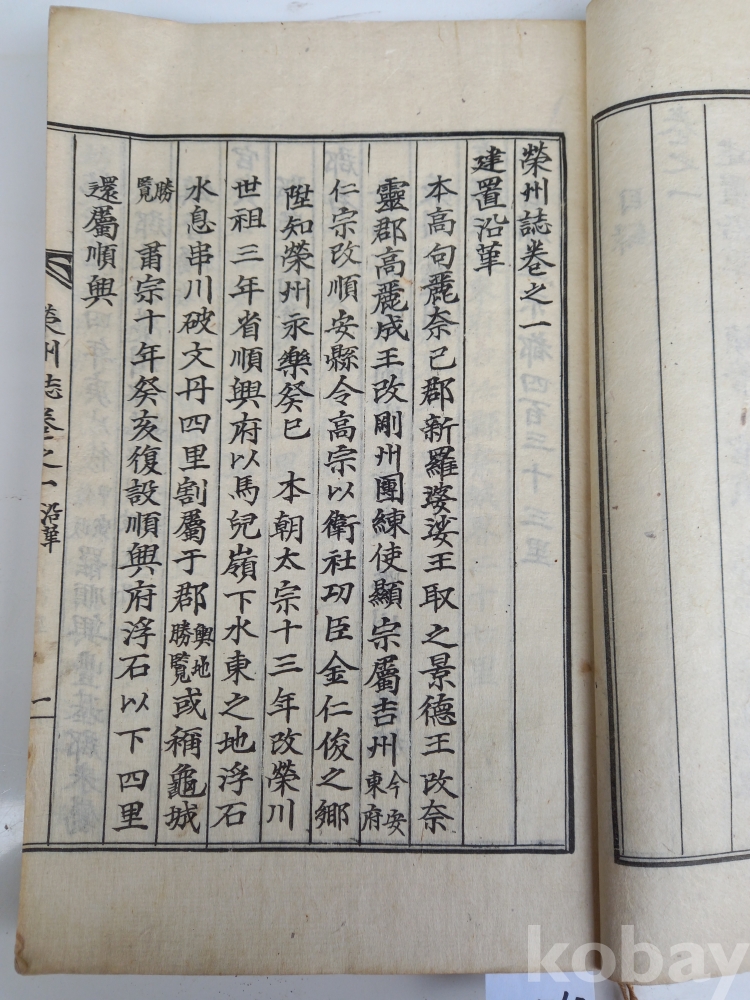 榮州誌卷之一
建置沿革
本高句麗奈已郡新羅婆娑王取之景德王改奈
靈郡高麗成王改剛州團練使顯宗屬吉州今安東府
仁宗改順安縣令高宗以衛社功臣金仁俊之鄉
陞知榮州永樂癸巳 本朝太宗十三年改榮川
世祖三年省順興府以馬兒嶺下水東之地浮石
水息串川破文丹四里割屬于郡輿地勝覽或稱龜城
勝覽 肅宗十年癸亥復設順興府浮石以下四里
還屬順興
榮州誌卷之一 沿革 一
kobay